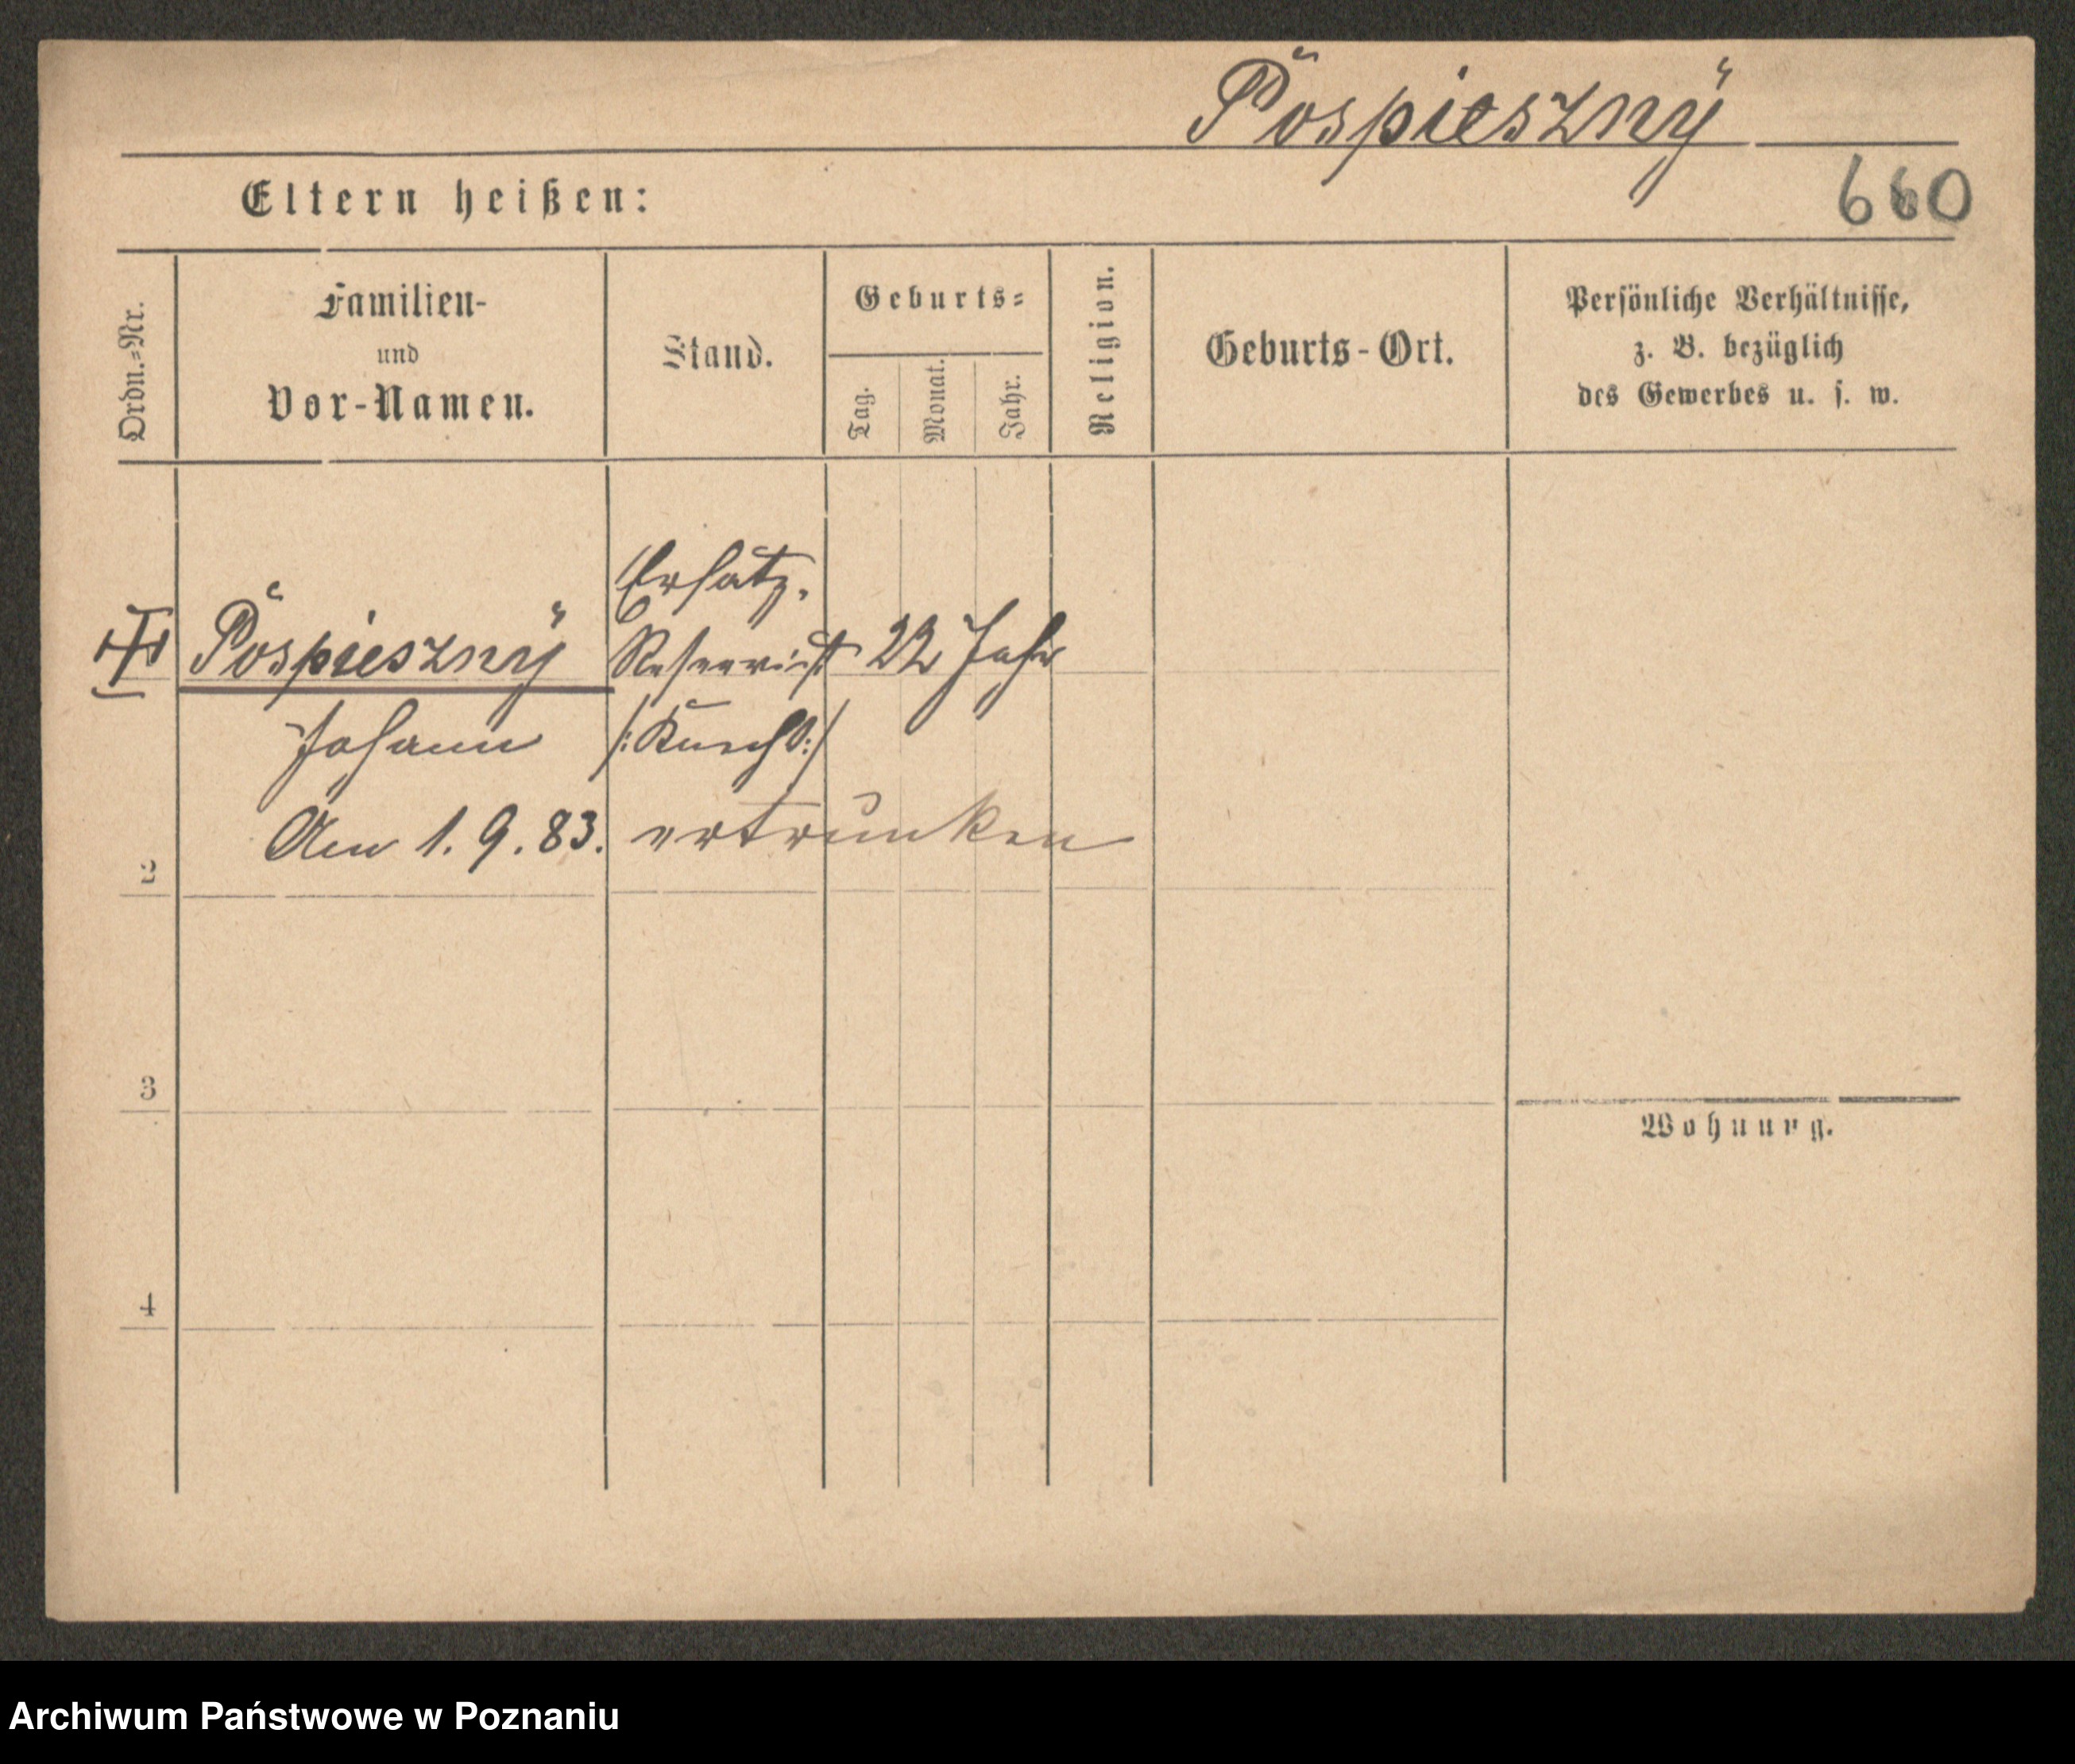 Pospieszny
Eltern heißen:
660
Ordn.=Nr.
Familien-
und
Vor-Namen.
Stand.
Geburts=
Tag.
Monat.
Jahr.
Religion.
Geburts-Ort.
Persönliche Verhältnisse,
z. B. bezüglich
des Gewerbes u. s. w.
Ersatz.
Pospieszny Reservist 22 Jahr
Johann /:Knecht:/
Am 1. 9. 83. ertrunken
2
3
Wohnung.
4
Archiwum Państwowe w Poznaniu